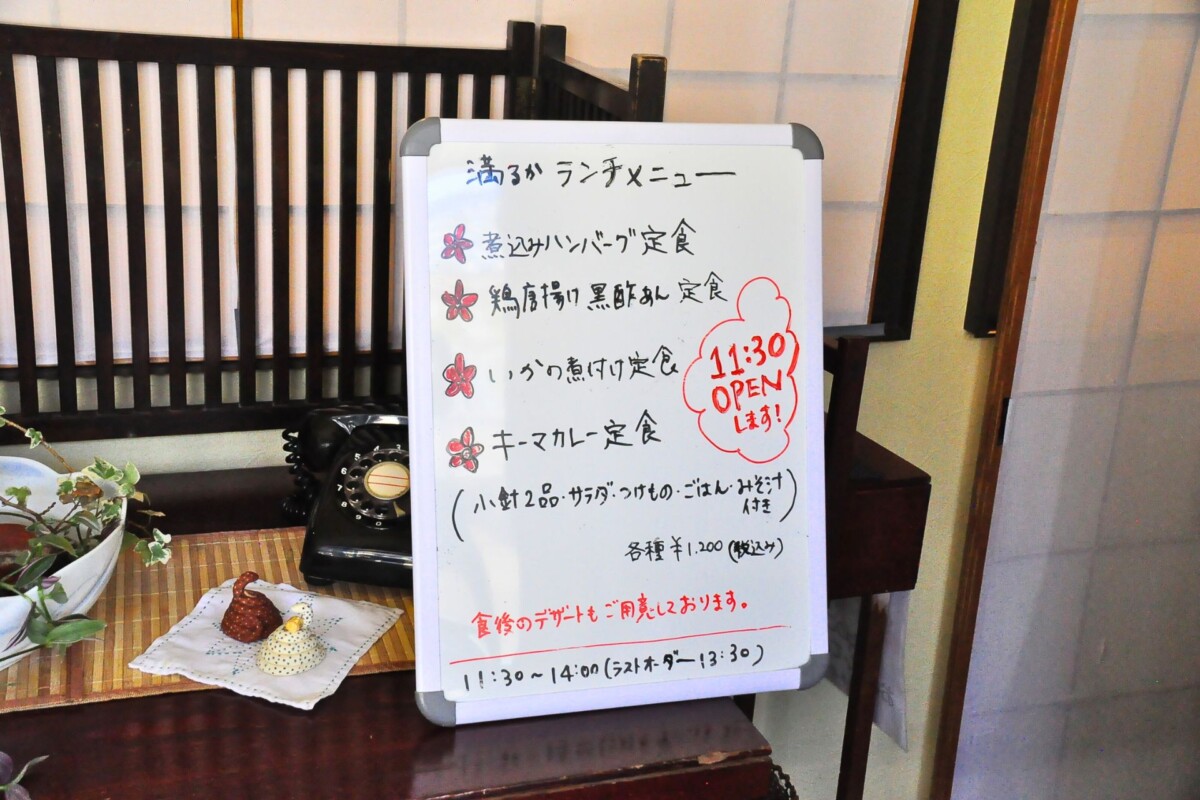 満るか ランチメニュー
煮込みハンバーグ定食
鶏唐揚け黒酢あん定食
いかの煮付け定食
キーマカレー定食
11:30
OPEN
します!
(小針2品・サラダ・つけもの・ごはん・みそ汁
付き)
各種¥1.200(税込み)
食後のデザートもご用意しております。
11:30～14:00(ラストオーダー13:30)